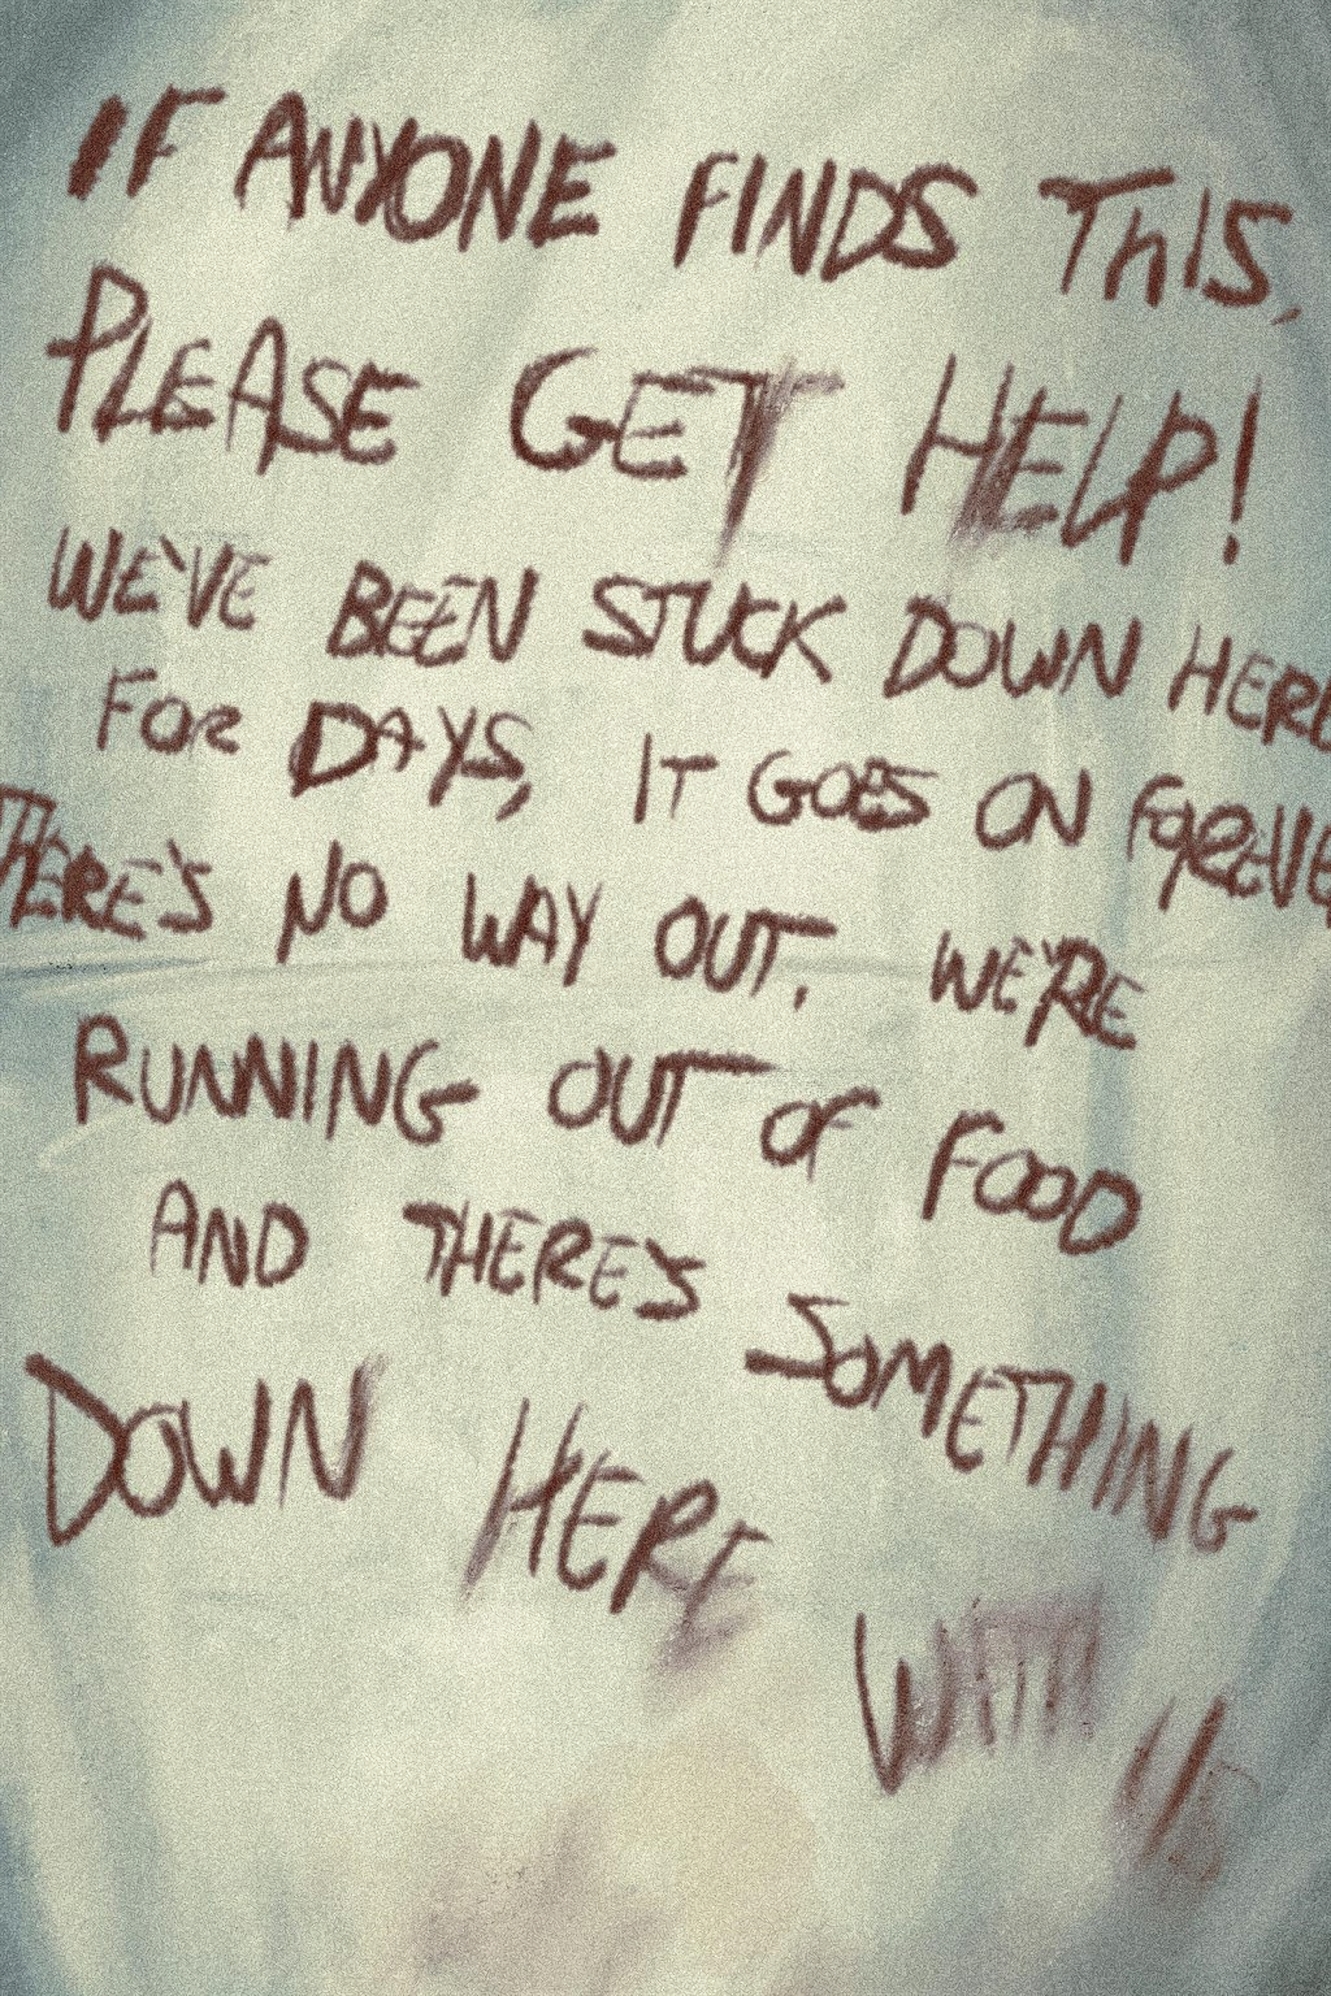 IF ANYONE FINDS THIS,
PLEASE GET HELP!
WE'VE BEEN STUCK DOWN HERE
FOR DAYS, IT GOES ON FOREVE
THERE'S NO WAY OUT. WE'RE
RUNNING OUT OF FOOD
AND THERE'S SOMETHING
DOWN HERE
WITH US